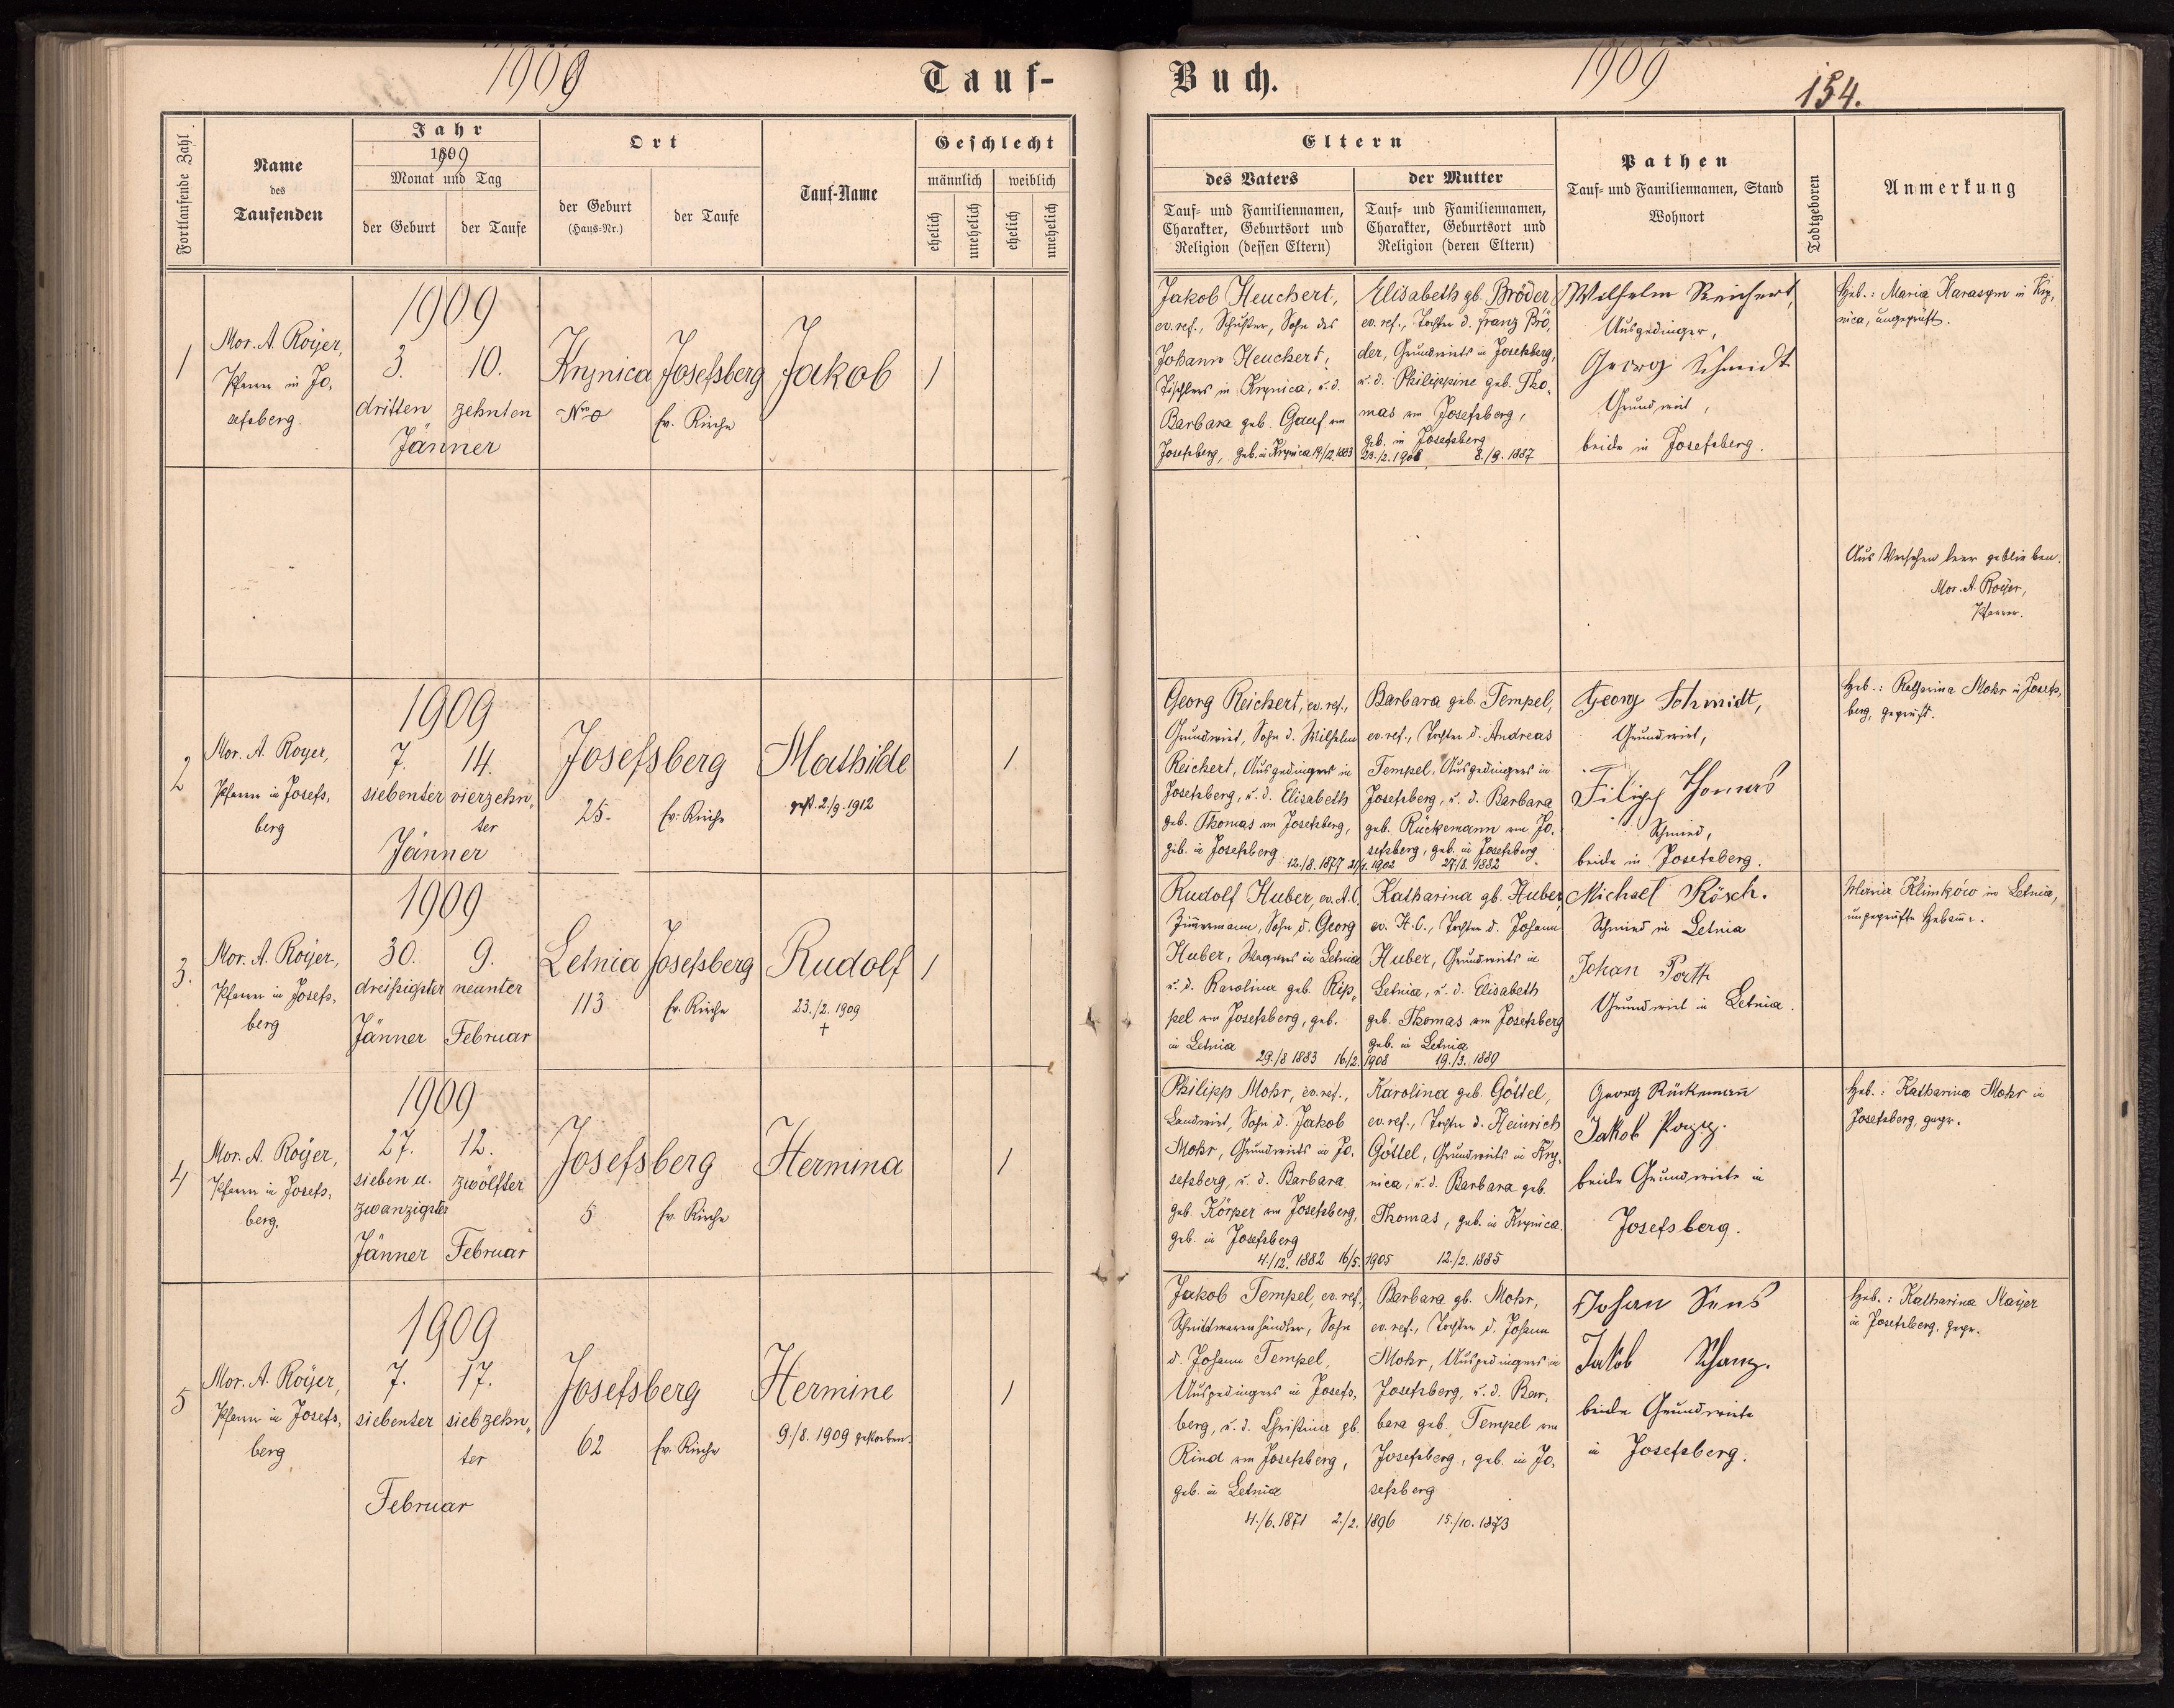 1909
Tauf-
Buch.
1909
154.
Fortlaufende Zahl
Name
des
Taufenden
Jahr
1909
Monat und Tag
der Geburt
der Taufe
Ort
der Geburt
(Haus-Nr.)
der Taufe
Tauf-Name
Geschlecht
männlich
weiblich
ehelich
unehelich
ehelich
unehelich
Eltern
des Vaters
Tauf- und Familiennamen,
Charakter, Geburtsort und
Religion (dessen Eltern)
der Mutter
Tauf- und Familiennamen,
Charakter, Geburtsort und
Religion (deren Eltern)
Pathen
Tauf- und Familiennamen, Stand
Wohnort
Todtgeboren
Anmerkung
1
Mor. A. Royer,
Pfarrer in Jo,
sefsberg.
1909
3. 10.
dritten zehnten
Jänner
Krynica
Josefsberg
Ev. Kirche
Jakob
1
Jakob Heuchert,
ev. ref., Schuster, Sohn des
Johann Heuchert,
Tischlers in Krynica, u. d.
Barbara geb. Gauf von
Josefsberg, geb. in Krynica 19/12 1883
Elisabeth gb. Bröder
ev. ref., Tochter d. Franz Brö,
der, Grundwirts in Josefsberg,
u. d. Philippine geb. Tho,
mas von Josefsberg,
geb. in Josefsberg
23./2. 1908 8./9. 1887
Wilhelm Reichert,
Ausgedinger,
Georg Schmidt
Grundwirt,
beide in Josefsberg.
Heb.: Maria Karasym in Kry,
nica, ungeprüft.
Aus Versehen leer geblieben.
Mor. A. Royer,
Pfarrer.
2
Mor. A. Royer,
Pfarrer in Josefs,
berg
1909
7. 14.
siebenter vierzehn,
ter
Jänner
Josefsberg
25. Ev. Kirche
Mathilde
gest. 2./9. 1912
1
Georg Reichert, ev. ref.,
Grundwirt, Sohn d. Wilhelm
Reichert, Ausgedingers in
Josefsberg, u. d. Elisabeth
geb. Thomas von Josefsberg,
geb. in Josefsberg
12./8. 1877
Barbara geb. Tempel,
ev. ref., Tochter d. Andreas
Tempel, Ausgedingers in
Josefsberg, u. d. Barbara
geb. Rückemann von Jo,
sefsberg, geb. in Josefsberg
1902 27./8. 1882
Georg Schmidt,
Grundwirt,
Filipp Thomas
Schmied,
beide in Josefsberg.
Heb.: Katharina Mohr in Josefs,
berg, geprüft.
3.
Mor. A. Royer,
Pfarrer in Josefs,
berg
1909
30. 9.
dreißigster neunter
Jänner Februar
Letnia Josefsberg
113 Ev. Kirche
Rudolf
23./2. 1909
+
1
Rudolf Huber, ev. A.C.
Zimmermann, Sohn d. Georg
Huber, Wagners in Letnia
u. d. Karolina geb. Rip,
pel von Josefsberg, geb.
in Letnia
29./8 1883 16/2.
Katharina gb. Huber,
ev. A.C., Tochter d. Johann
Huber, Grundwirts in
Letnia, u. d. Elisabeth
geb. Thomas von Josefsberg
geb. in Letnia
1908 19./3. 1889
Michael Rösch.
Schmied in Letnia
Johan Porth
Grundwirt in Letnia.
Maria Klimków in Letnia,
ungeprüfte Hebame.
4
Mor. A. Royer,
Pfarrer in Josefs,
berg.
1909
27. 12.
sieben u. zwölfter
zwanzigster
Jänner Februar
Josefsberg
5 Ev. Kirche
Hermina
1
Philipp Mohr, ev. ref.,
Landwirt, Sohn d. Jakob
Mohr, Grundwirts in Jo,
sefsberg, u. d. Barbara
geb. Körper von Josefsberg,
geb. in Josefsberg
4./12. 1882 16/5.
Karolina geb. Göttel,
ev. ref., Tochter d. Heinrich
Göttel, Grundwirts in Kry,
nica, u. d. Barbara geb.
Thomas, geb. in Krynica.
1905 12./2. 1885
Georg Rückeman̄
Jakob
beide Grundwirte in
Josefsberg.
Heb.: Katharina Mohr in
Josefsberg, gepr.
5
Mor. A. Royer,
Pfarrer in Josefs,
berg
1909
7. 17.
siebenter siebzehn,
ter
Februar
Josefsberg
62 Ev. Kirche
Hermine
9./8. 1909 gestorben.
1
Jakob Tempel, ev. ref.,
Schnittwarenhändler, Sohn
d. Johann Tempel,
Ausgedingers in Josefs,
berg, u. d. Christina gb.
Rind von Josefsberg,
geb. in Letnia
4./6. 1871 2./2.
Barbara gb. Mohr,
ev. ref., Tochter d. Johann
Mohr, Ausgedingers in
Josefsberg, u. d. Bar,
bara geb. Tempel von
Josefsberg, geb. in Jo,
sefsberg
1896 15./10. 1873
Johan Sens
Jakob Schanz.
beide Grundwirte
in Josefsberg.
Heb.: Katharina Mayer
in Josefsberg, gepr.